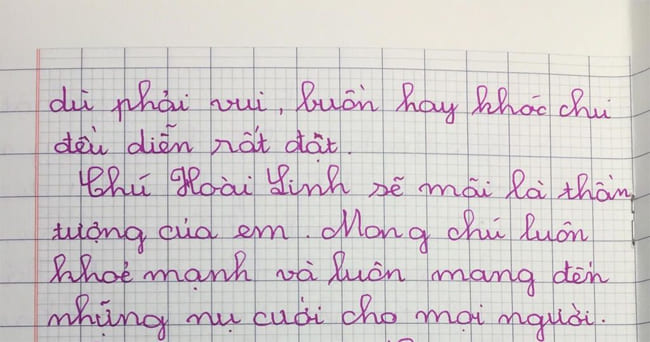 dù phải vui, buồn hay khóc chú
đều diễn rất đặt.
Chú Hoài Linh sẽ mãi là thần
tượng của em. Mong chú luôn
khoẻ mạnh và luôn mang đến
những nụ cười cho mọi người.